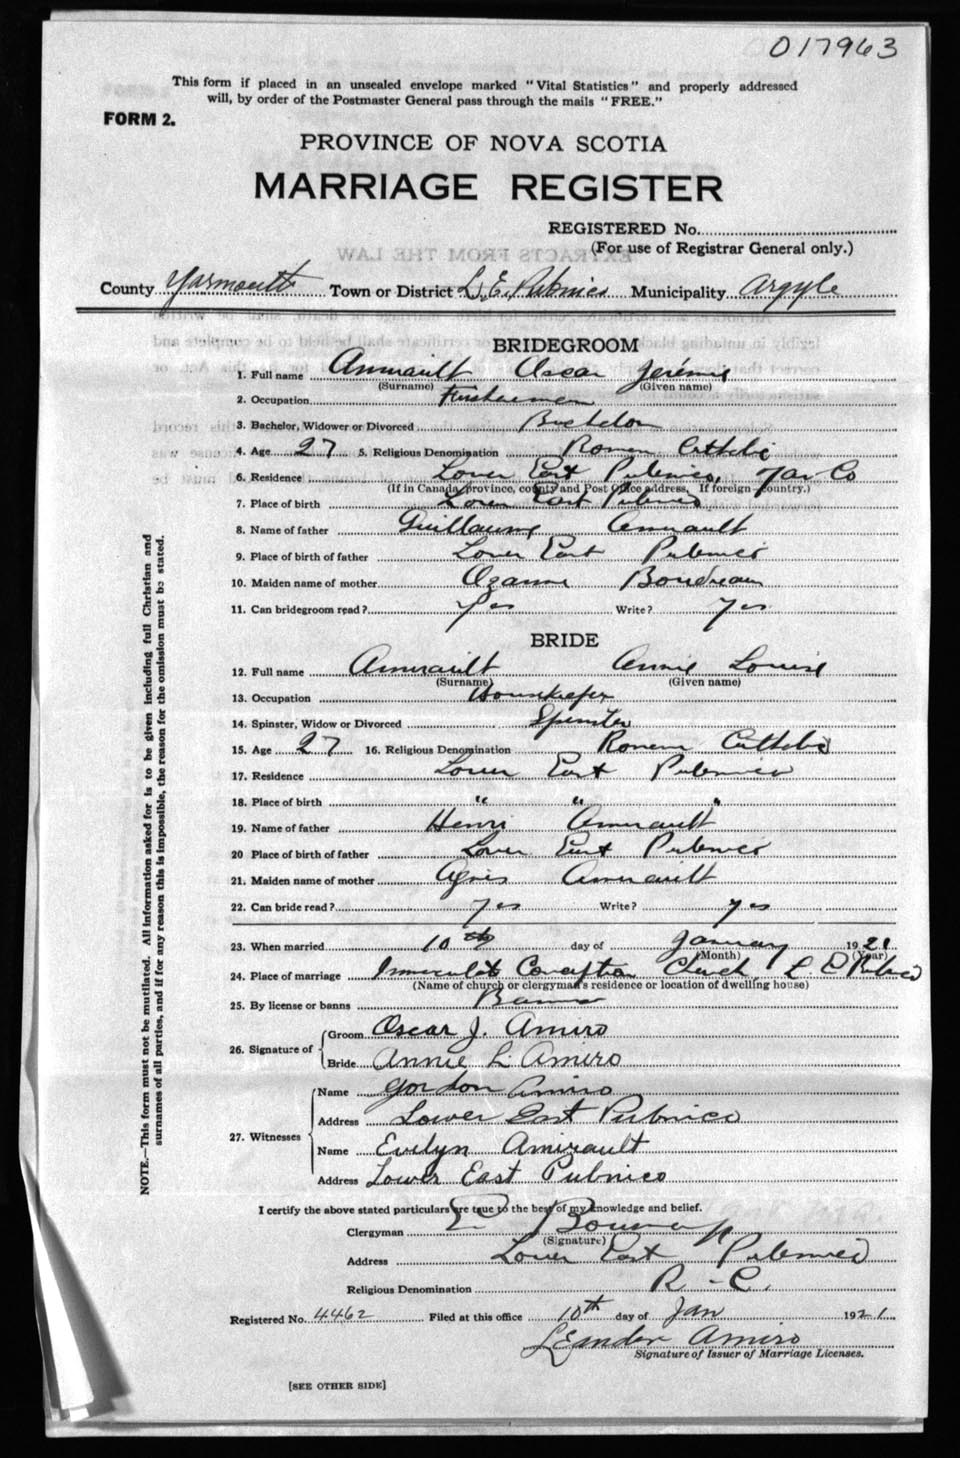 017963
This form if placed in an unsealed envelope marked "Vital Statistics" and properly addressed
will, by order of the Postmaster General pass through the mails "FREE."
FORM 2.
PROVINCE OF NOVA SCOTIA
MARRIAGE REGISTER
REGISTERED No.
(For use of Registrar General only.)
EXTRACTS FROM THE LAW
County Yarmouth Town or District L. E. Pubnico Municipality Argyle
BRIDEGROOM
1. Full name Amirault Oscar Jérémie
(Surname) (Given name)
2. Occupation Fisherman
3. Bachelor, Widower or Divorced Bachelor
4. Age 27 5. Religious Denomination Roman Catholic
6. Residence Lower East Pubnico, Yar Co
(If in Canada province, county and Post Office address. If foreign country.)
7. Place of birth Lower East Pubnico
8. Name of father Guillaume Amirault
9. Place of birth of father Lower East Pubnico
10. Maiden name of mother Ozanne Boudreau
11. Can bridegroom read? Yes Write? Yes
BRIDE
12. Full name Amirault Annie Louise
(Surname) (Given name)
13. Occupation Housekeeper
14. Spinster, Widow or Divorced Spinster
15. Age 27 16. Religious Denomination Roman Catholic
17. Residence Lower East Pubnico
18. Place of birth " " "
19. Name of father Henri Amirault
20 Place of birth of father Lower East Pubnico
21. Maiden name of mother Agnes Amirault
22. Can bride read? Yes Write? Yes
23. When married 10th day of January 1921
(Month) (Year)
24. Place of marriage Immaculate Conception Church, L. E Pubnico
(Name of church or clergyman's residence or location of dwelling house)
25. By license or banns Banns
26. Signature of Groom Oscar J. Amiro
Bride Annie L. Amiro
27. Witnesses Name Gordon Amiro
Address Lower East Pubnico
Name Evelyn Amirault
Address Lower East Pubnico
I certify the above stated particulars are true to the best of my knowledge and belief.
Clergyman E
(Signature)
Address Lower East Pubnico
Religious Denomination R - C.
Registered No. 4462 Filed at this office 10th day of Jan 1921
Leander Amiro
Signature of Issuer of Marriage Licenses.
[SEE OTHER SIDE]
NOTE.—This form must not be mutilated. All information asked for is to be given including full Christian and
surnames of all parties, and if for any reason this is impossible, the reason for the omission must be stated.